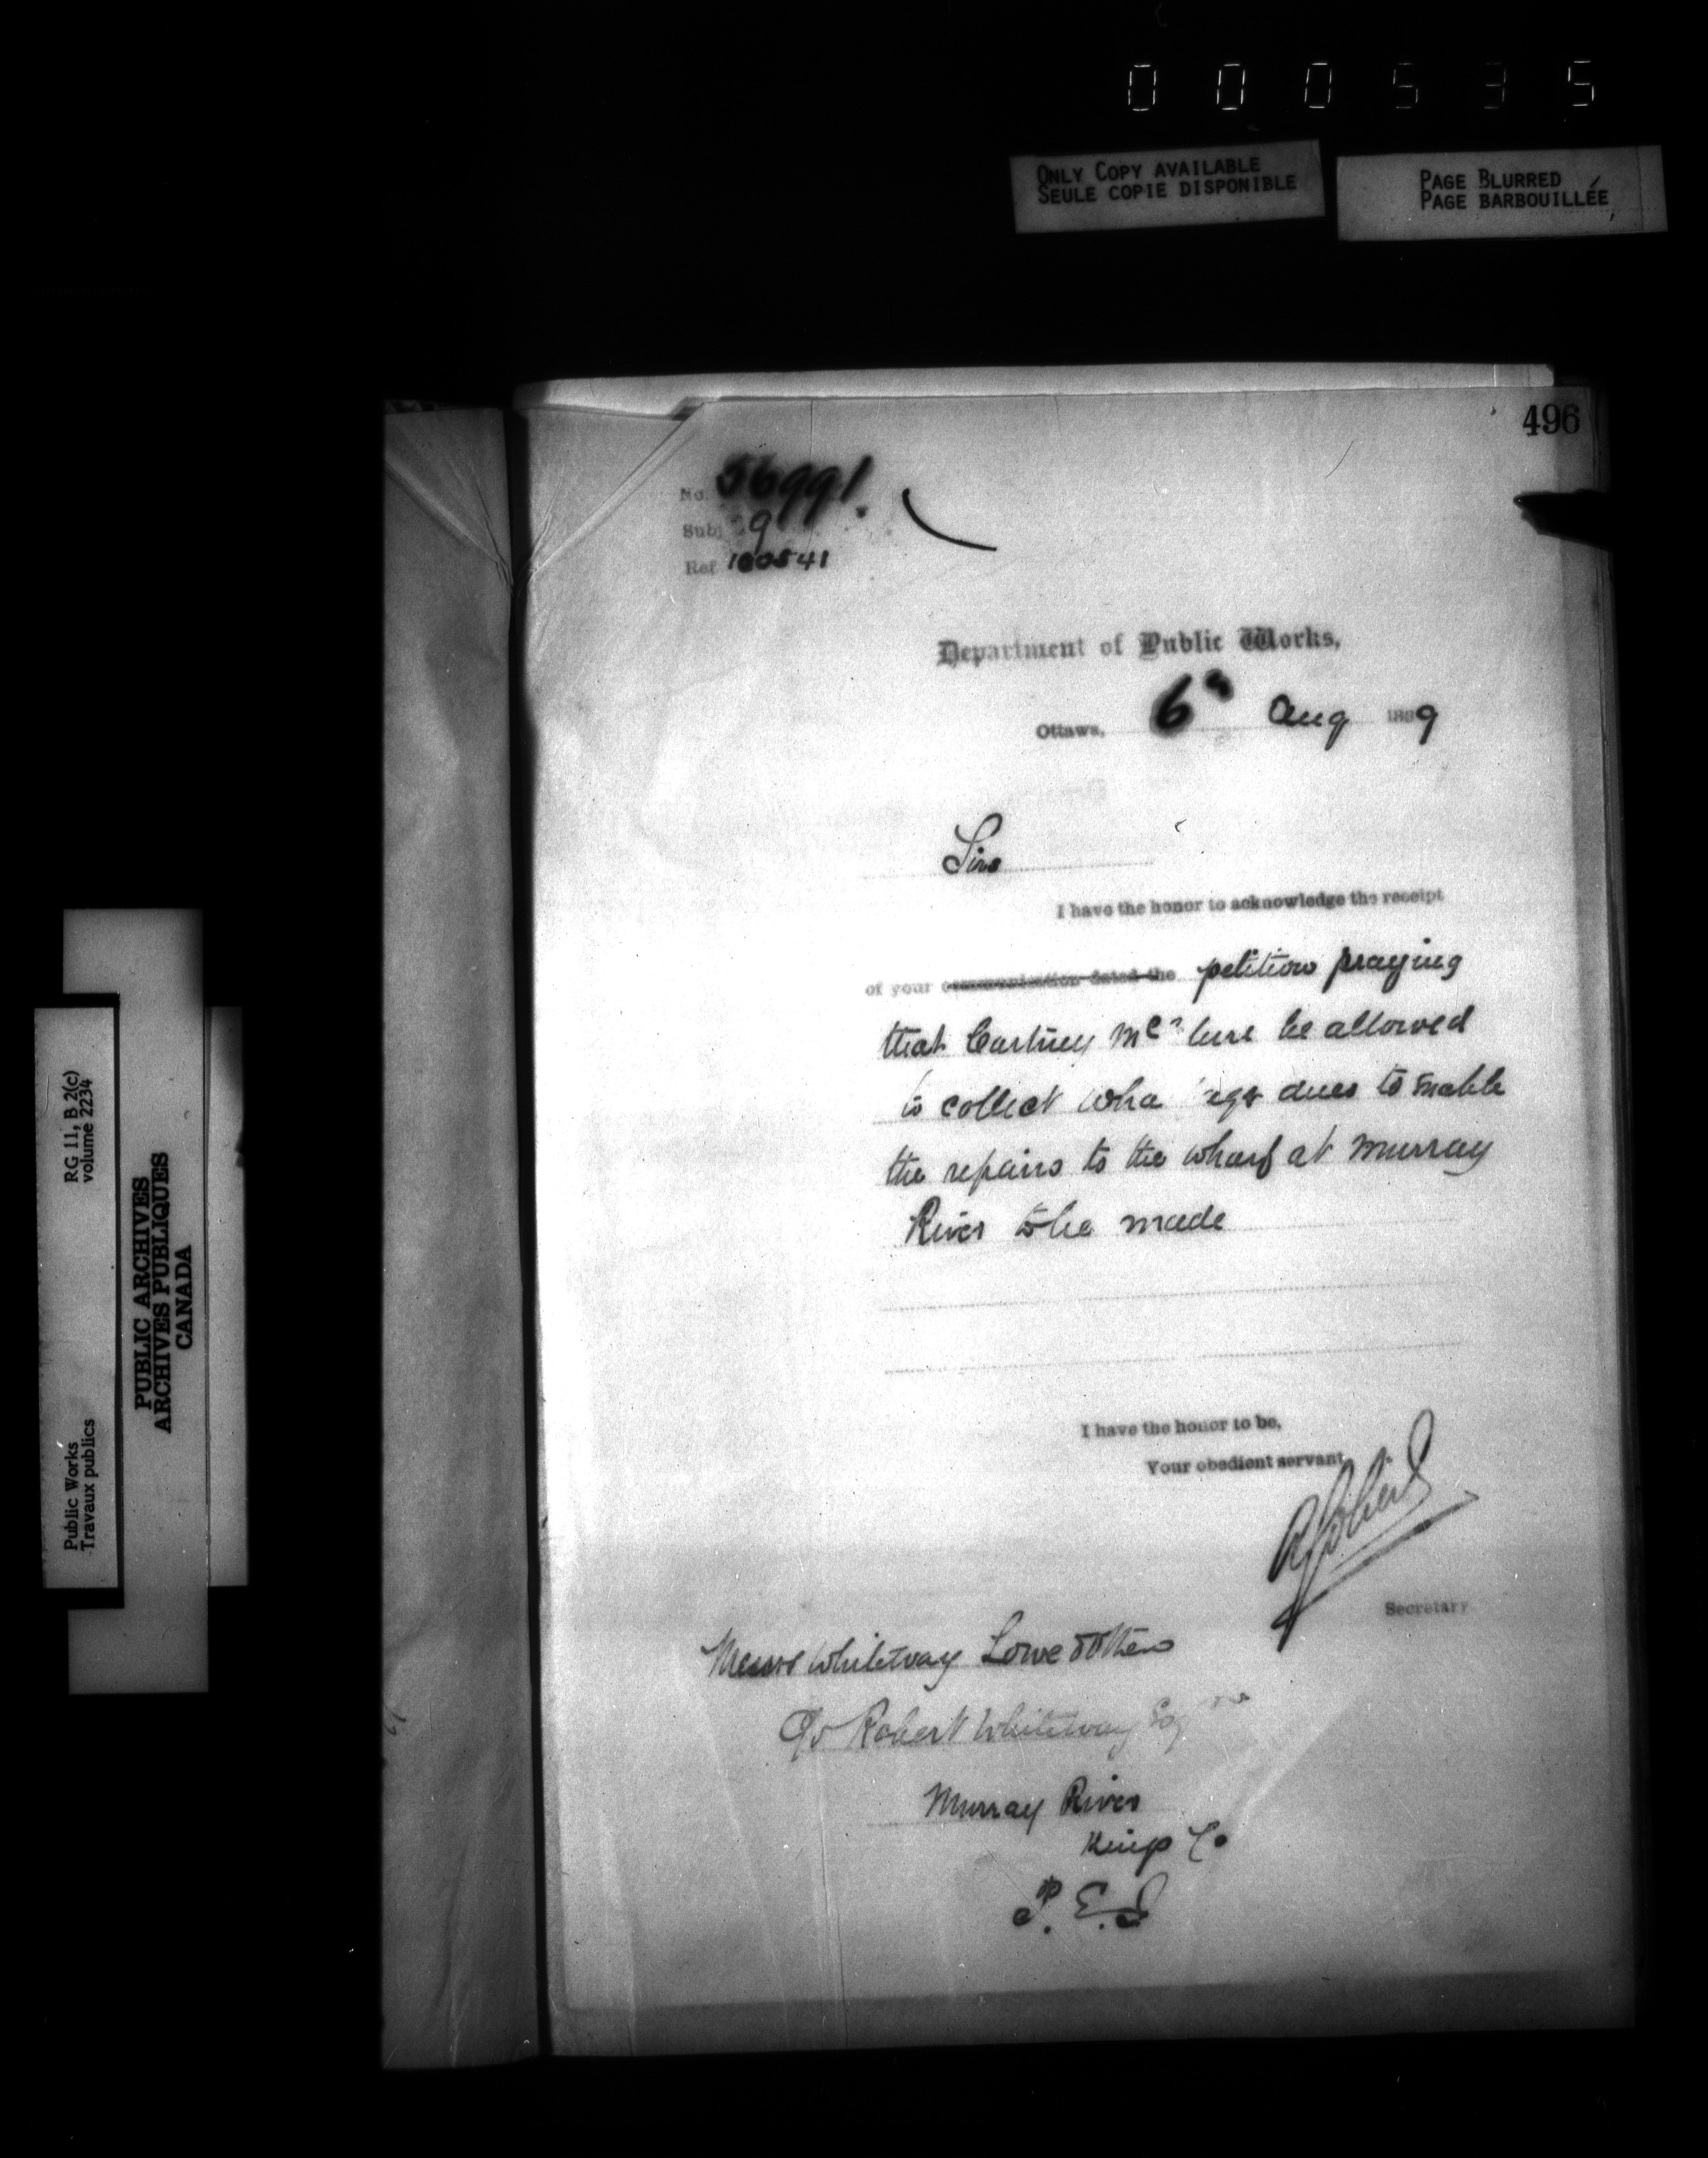 000535
ONLY COPY AVAILABLE
SEULE COPIE DISPONIBLE
PAGE BLURRED
PAGE BARBOUILLÉE
496
No. 56991.
Subj 9
Ref 100541
Department of Public Works,
Ottawa, 6 Aug 1889
Sirs
I have the honor to acknowledge the receipt
of your communication dated the petition praying
that be allowed
to collect dues to enable
the repairs to the wharf at Murray
River to be made
I have the honor to be,
Your obedient servant,
Secretary
Messrs Whiteway Lowe & others
c/o Robert Whiteway Esq
Murray River
Kings Co
P. E. I
RG 11, B 2(c)
volume 2234
Public Works
Travaux publics
PUBLIC ARCHIVES
ARCHIVES PUBLIQUES
CANADA